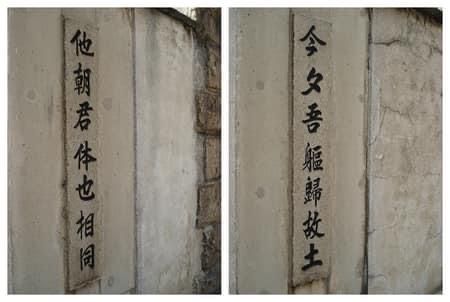 他朝君体也相同
今夕吾軀歸故土